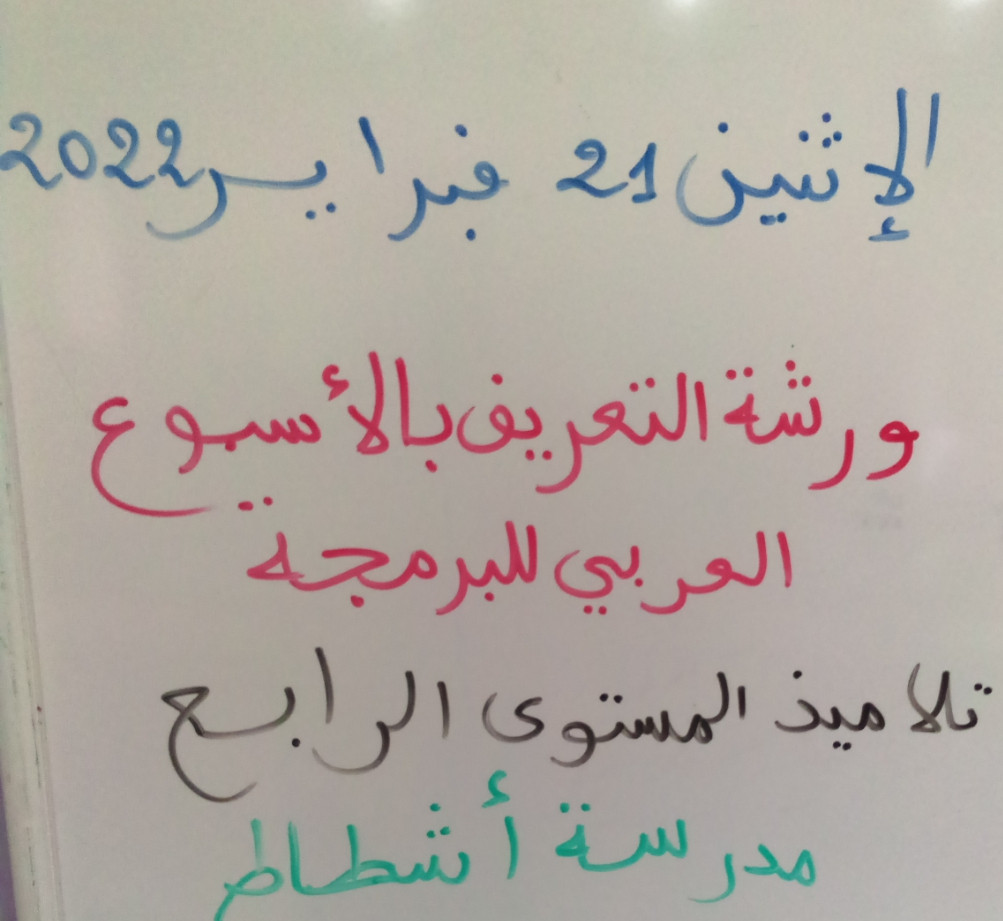 الإثنين 21 فبراير 2022
ورشة التعريف بالأسبوع
العربي للبرمجة
تلاميذ المستوى الرابع
مدرسة أشطاط